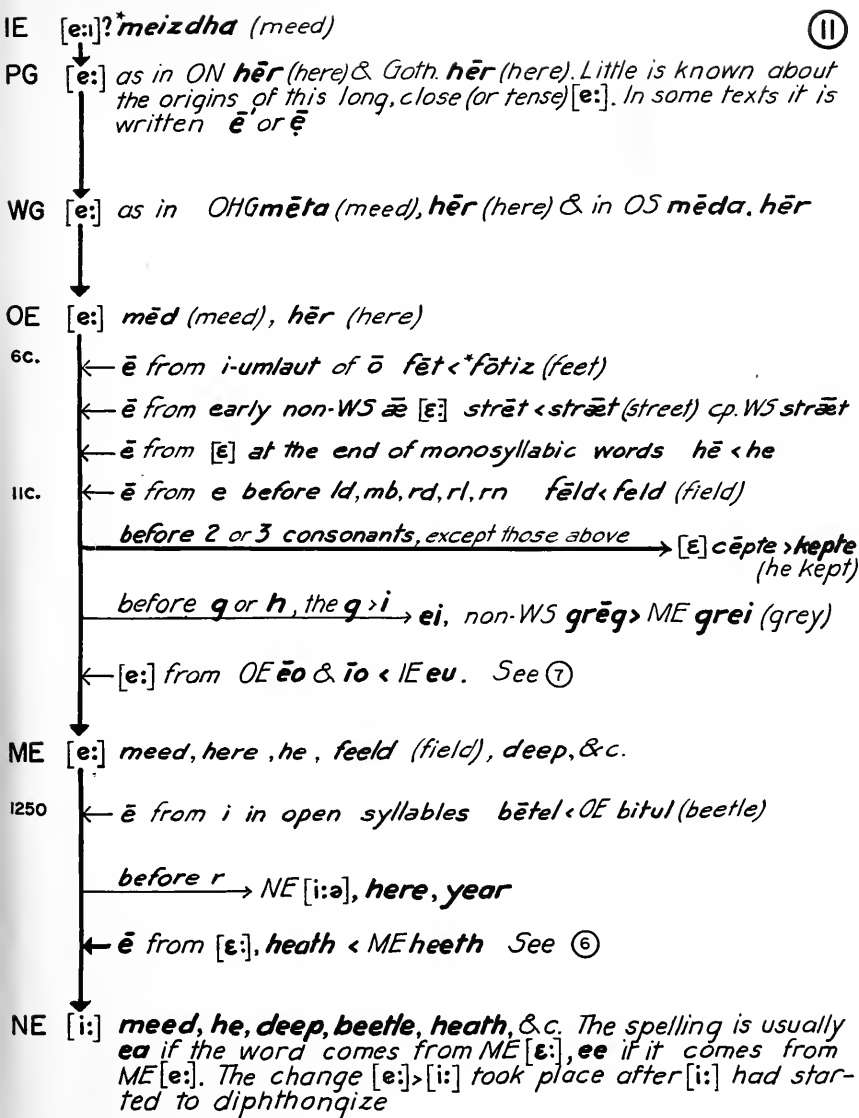 IE [e:ɪ]? *meizdha (meed) ⑪
PG [e:] as in ON hēr (here) & Goth. hēr (here). Little is known about
the origins of this long, close (or tense) [e:]. In some texts it is
written ē' or ẹ̄
WG [e:] as in OHG mēta (meed), hēr (here) & in OS mēda, hēr
OE [e:] mēd (meed), hēr (here)
6c. ē from i-umlaut of ō fēt < *fōtiz (feet)
ē from early non-WS ǣ [ɛ:] strēt < strǣt (street) cp. WS strǣt
ē from [ɛ] at the end of monosyllabic words hē < he
11c. ē from e before ld, mb, rd, rl, rn fēld < feld (field)
before 2 or 3 consonants, except those above → [ɛ] cēpte > kepte
(he kept)
before g or h, the g > i → ei, non-WS grēg > ME grei (grey)
[e:] from OE ēo & īo < IE eu. See ⑦
ME [e:] meed, here, he, feeld (field), deep, &c.
1250 ē from i in open syllables bētel < OE bitul (beetle)
before r → NE [i:ə], here, year
ē from [ɛ:], heath < ME heeth See ⑥
NE [i:] meed, he, deep, beetle, heath, &c. The spelling is usually
ea if the word comes from ME [ɛ:], ee if it comes from
ME [e:]. The change [e:] > [i:] took place after [i:] had star-
ted to diphthongize